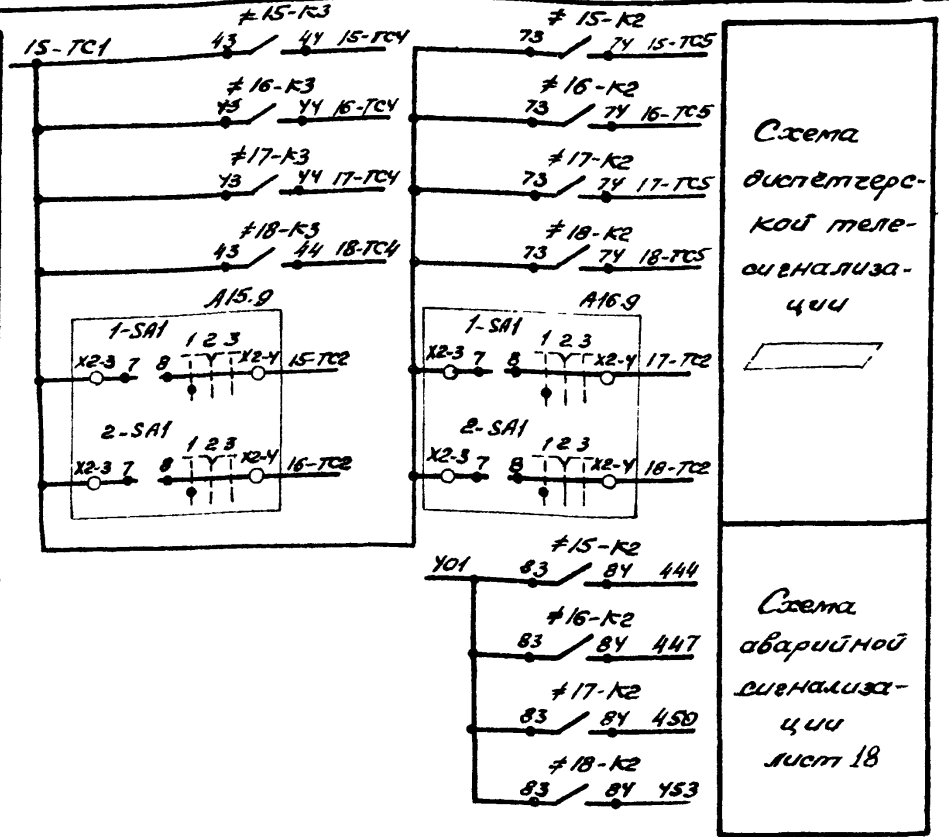 15-ТС1
≠15-К3
43 44 15-ТС4
≠16-К3
43 44 16-ТС4
≠17-К3
43 44 17-ТС4
≠18-К3
43 44 18-ТС4
А15.9
1-SA1
1 2 3
X2-3 7 8 X2-4 15-ТС2
2-SA1
1 2 3
X2-3 7 8 X2-4 16-ТС2
≠15-К2
73 74 15-ТС5
≠16-К2
73 74 16-ТС5
≠17-К2
73 74 17-ТС5
≠18-К2
73 74 18-ТС5
А16.9
1-SA1
1 2 3
X2-3 7 8 X2-4 17-ТС2
2-SA1
1 2 3
X2-3 7 8 X2-4 18-ТС2
401
≠15-К2
83 84 444
≠16-К2
83 84 447
≠17-К2
83 84 450
≠18-К2
83 84 453
Схема
диспетчерс-
кой теле-
сигнализа-
ции
Схема
аварийной
сигнализа-
ции
лист 18